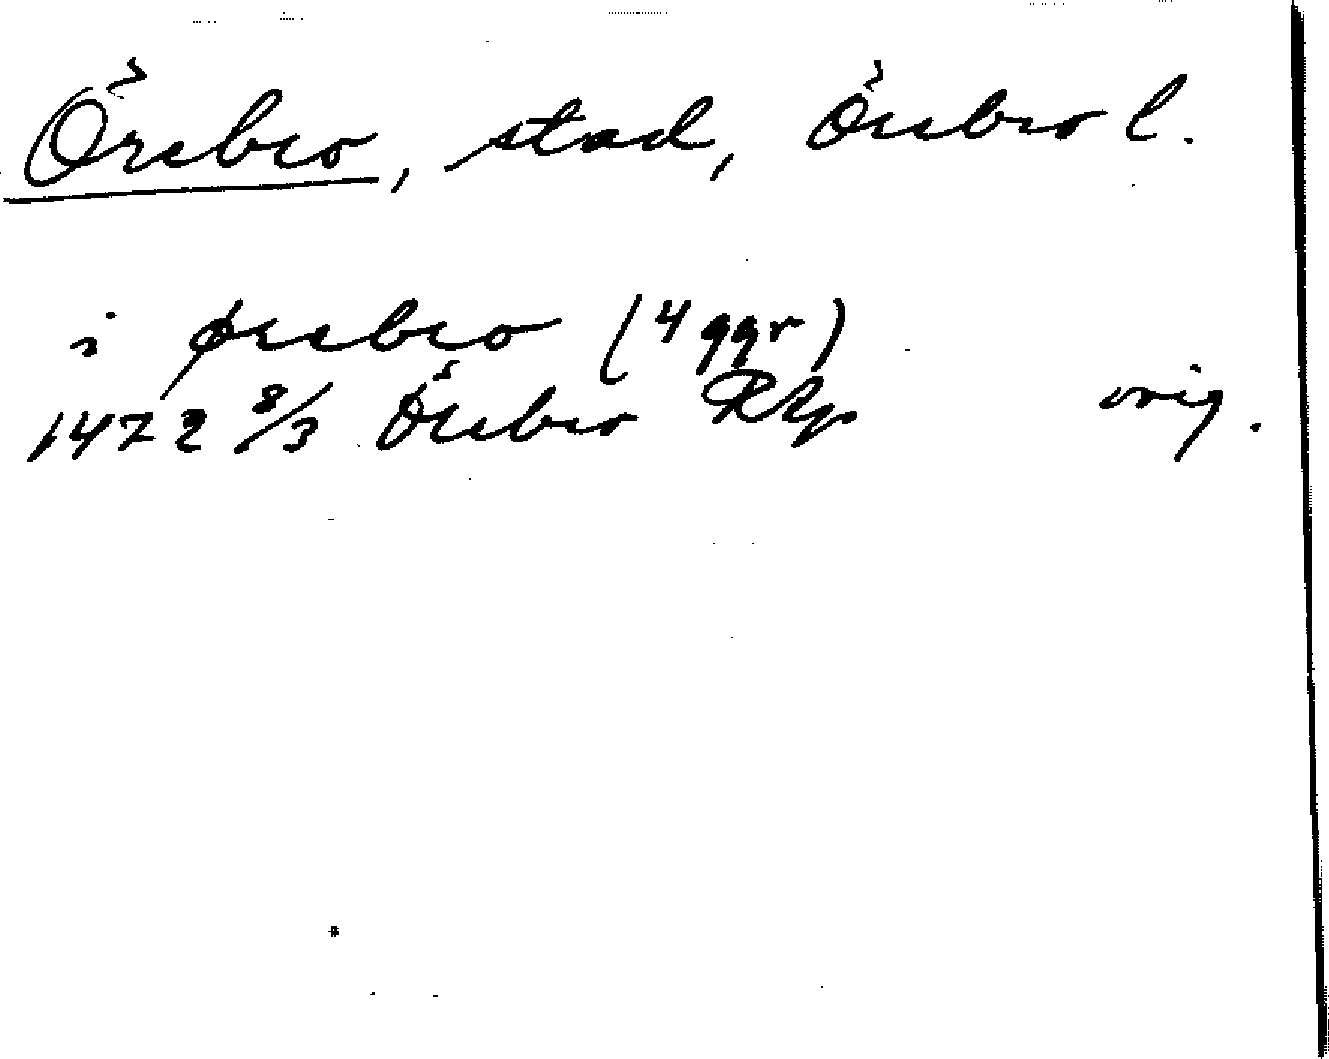 Örebro, stad, Örebro l.
i ørebro (4 ggr)
1472 8/3 Örebro RAp orig.